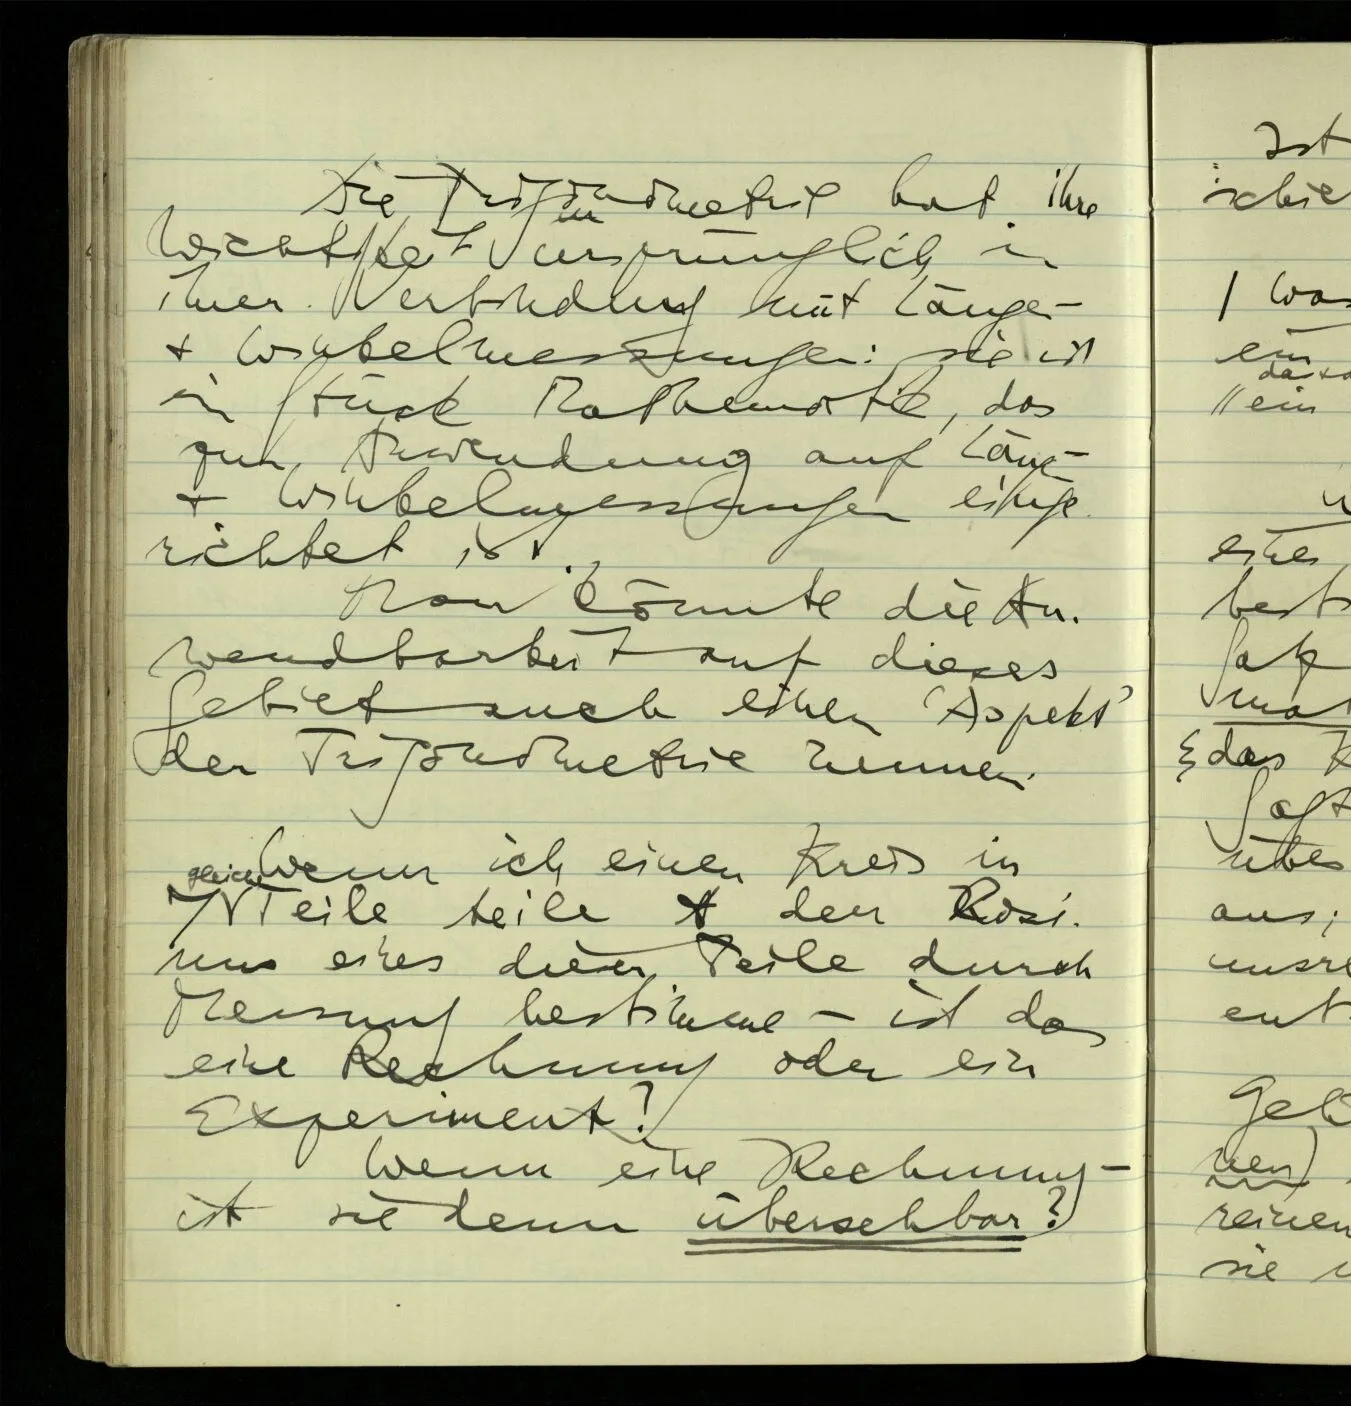 Die Trigonometrie hat ihre
Wichtigkeit ursprünglich in
ihrer Verbindung mit Länge-
+ Winkelmessungen: sie ist
ein Stück Mathematik, das
zur Anwendung auf Läng-
+ Winkelmessungen einge-
richtet ist.
Man könnte die An-
wendbarkeit auf dieses
Gebiet auch einen 'Aspekt'
der Trigonometrie nennen.
Wenn ich einen Kreis in
gleiche
N Teile teile & den Kosi-
nus eines dieser Teile durch
Messung bestimme – ist das
eine Rechnung oder ein
Experiment?
Wenn eine Rechnung –
ist sie denn übersehbar?
Ist
ein
"ein
best
das
aus;
ent
nen)
reinen
sie